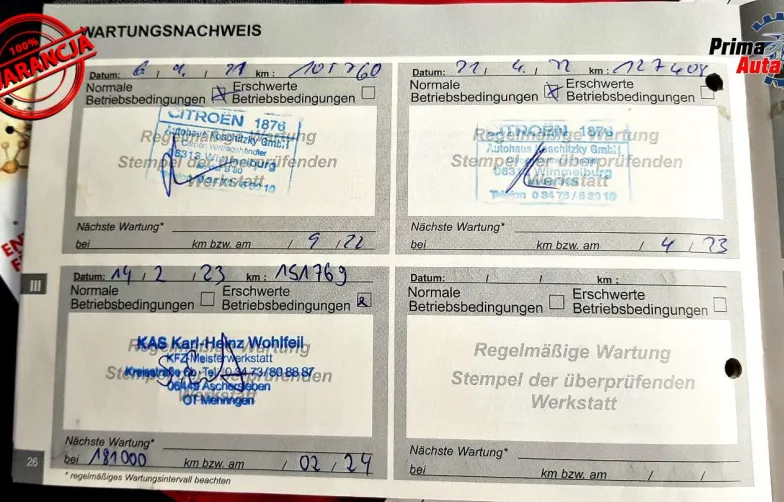 100%
GARANCJA
Prima
Auta
WARTUNGSNACHWEIS
Datum: 6 / 9 / 21 km: 105760
Normale
Betriebsbedingungen
Erschwerte
Betriebsbedingungen
CITROËN 1876
Regelmäßige Wartung
Autohaus Koschitzky GmbH
Citroën Vertragshändler
Stempel der überprüfenden
06313 Wimmelburg
Werkstatt
Nächste Wartung*
bei km bzw. am / 9 / 22
Datum: 21 / 4. / 22 km: 127408
Normale
Betriebsbedingungen
Erschwerte
Betriebsbedingungen
CITROËN 1876
Regelmäßige Wartung
Autohaus Koschitzky GmbH
Stempel der überprüfenden
06313 Wimmelburg
Werkstatt
Telefon
Nächste Wartung*
bei km bzw. am / 4 / 23
III
Datum: 14 / 2 / 23 km: 151769
Normale
Betriebsbedingungen
Erschwerte
Betriebsbedingungen
KAS Karl-Heinz Wohlfeil
Regelmäßige Wartung
KFZ-Meisterwerkstatt
Stempel der überprüfenden
Kreisstraße 6b · Tel. 0 34 73 / 80 88 87
06449 Aschersleben
Werkstatt
OT Mehringen
Nächste Wartung*
bei 181000 km bzw. am / 02 / 24
Datum: / / km:
Normale
Betriebsbedingungen
Erschwerte
Betriebsbedingungen
Regelmäßige Wartung
Stempel der überprüfenden
Werkstatt
Nächste Wartung*
bei km bzw. am / /
26
* regelmäßiges Wartungsintervall beachten